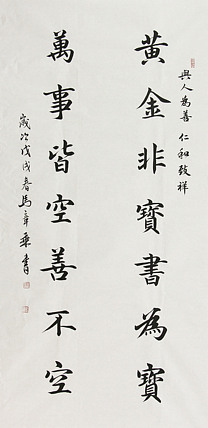 與人為善 仁和致祥
黃金非寶書為寶
萬事皆空善不空
歲次戊戌春馬章乘書